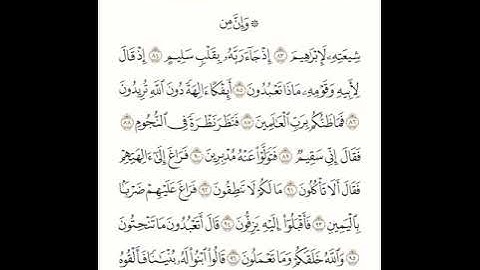 ۞ وَإِنَّ مِن
شِيعَتِهِۦ لَإِبْرَٰهِيمَ ﴿٨٣﴾ إِذْ جَآءَ رَبَّهُۥ بِقَلْبٍ سَلِيمٍ ﴿٨٤﴾ إِذْ قَالَ
لِأَبِيهِ وَقَوْمِهِۦ مَاذَا تَعْبُدُونَ ﴿٨٥﴾ أَئِفْكًا ءَالِهَةً دُونَ ٱللَّهِ تُرِيدُونَ
﴿٨٦﴾ فَمَا ظَنُّكُم بِرَبِّ ٱلْعَٰلَمِينَ ﴿٨٧﴾ فَنَظَرَ نَظْرَةً فِى ٱلنُّجُومِ ﴿٨٨﴾
فَقَالَ إِنِّى سَقِيمٌ ﴿٨٩﴾ فَتَوَلَّوْا۟ عَنْهُ مُدْبِرِينَ ﴿٩٠﴾ فَرَاغَ إِلَىٰٓ ءَالِهَتِهِمْ
فَقَالَ أَلَا تَأْكُلُونَ ﴿٩١﴾ مَا لَكُمْ لَا تَنطِقُونَ ﴿٩٢﴾ فَرَاغَ عَلَيْهِمْ ضَرْبًۢا
بِٱلْيَمِينِ ﴿٩٣﴾ فَأَقْبَلُوٓا۟ إِلَيْهِ يَزِفُّونَ ﴿٩٤﴾ قَالَ أَتَعْبُدُونَ مَا تَنْحِتُونَ
﴿٩٥﴾ وَٱللَّهُ خَلَقَكُمْ وَمَا تَعْمَلُونَ ﴿٩٦﴾ قَالُوا۟ ٱبْنُوا۟ لَهُۥ بُنْيَٰنًا فَأَلْقُوهُ